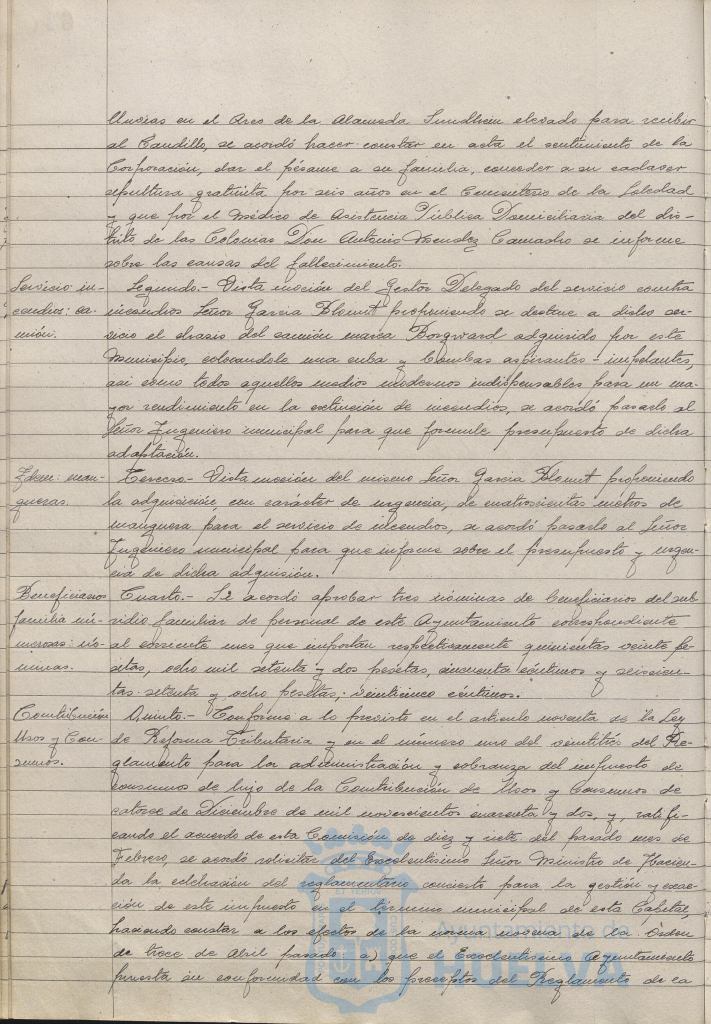 lluvias en el Arco de la Alameda Sundheim elevado para recibir
al Caudillo, se acordó hacer constar en acta el sentimiento de la
Corporación, dar el pésame a su familia, conceder a su cadaver
sepultura gratuita por seis años en el Cementerio de la Soledad
y que por el Médico de Asistencia Pública Domiciliaria del dis-
trito de las Colonias Don Antonio Mendez Camacho se informe
sobre las causas del fallecimiento.
Servicio in-
cendios: ca-
mión.
Segundo.- Vista moción del Gestor Delegado del servicio contra
incendios Señor Garcia Blomut proponiendo se destine a dicho ser-
vicio el chasis del camión marca Borgward adquirido por este
Municipio, colocandole una cuba y bombas aspirantes-impelentes,
asi como todos aquellos medios modernos indispensables para un ma-
yor rendimiento en la extinción de incendios, se acordó pasarlo al
Señor Ingeniero municipal para que formule presupuesto de dicha
adaptación.
Idem: man-
gueras.
Tercero.- Vista moción del mismo Señor Garcia Blomut proponiendo
la adquisición con carácter de urgencia, de cuatrocientos métros de
manguera para el servicio de incendios, se acordó pasarlo al Señor
Ingeniero municipal para que informe sobre el presupuesto y urgen-
cia de dicha adquisión.
Beneficiarios
familia nu-
merosa: nó-
minas.
Cuarto.- Se acordó aprobar tres nóminas de beneficiarios del sub-
sidio familiar de personal de este Ayuntamiento correspondiente
al corriente mes que importan respectivamente quinientas veinte pe-
setas, ocho mil setenta y dos pesetas, cincuenta céntimos y seiscien-
tas setenta y ocho pesetas, veinticinco céntimos.
Contribución
Usos y Con-
sumos.
Quinto.- Conforme a lo previsto en el articulo noventa de la Ley
de Reforma Tributaria y en el número uno del veintitrés del Re-
glamento para la administración y cobranza del impuesto de
consumos de lujo de la Contribución de Usos y Consumos de
catorce de Diciembre de mil novecientos cuarenta y dos, y, ratifi-
cando el acuerdo de esta Comisión de diez y siete del pasado mes de
Febrero, se acordó solicitar del Excelentísimo Señor Ministro de Hacien-
da la celebración del reglamentario concierto para la gestión y exac-
ción de este impuesto en el término municipal de esta Capital,
haciendo constar a los efectos de la norma novena de la Orden
de trece de Abril pasado a) que el Excelentísimo Ayuntamiento
presta su conformidad con los preceptos del Reglamento de la
Ayuntamiento de
HUELVA